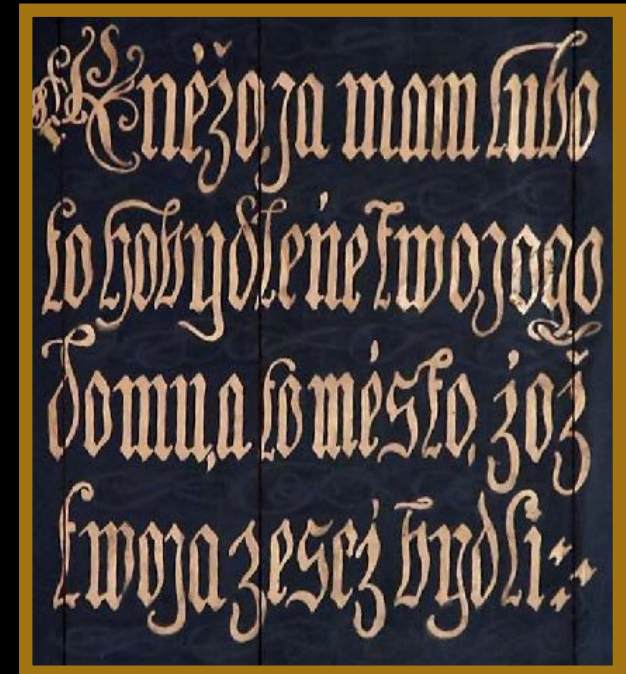 Knéžo, ja mam lubo
to hobydleńe twojogo
domu, a to mésto, źož
twoja zescź bydli :